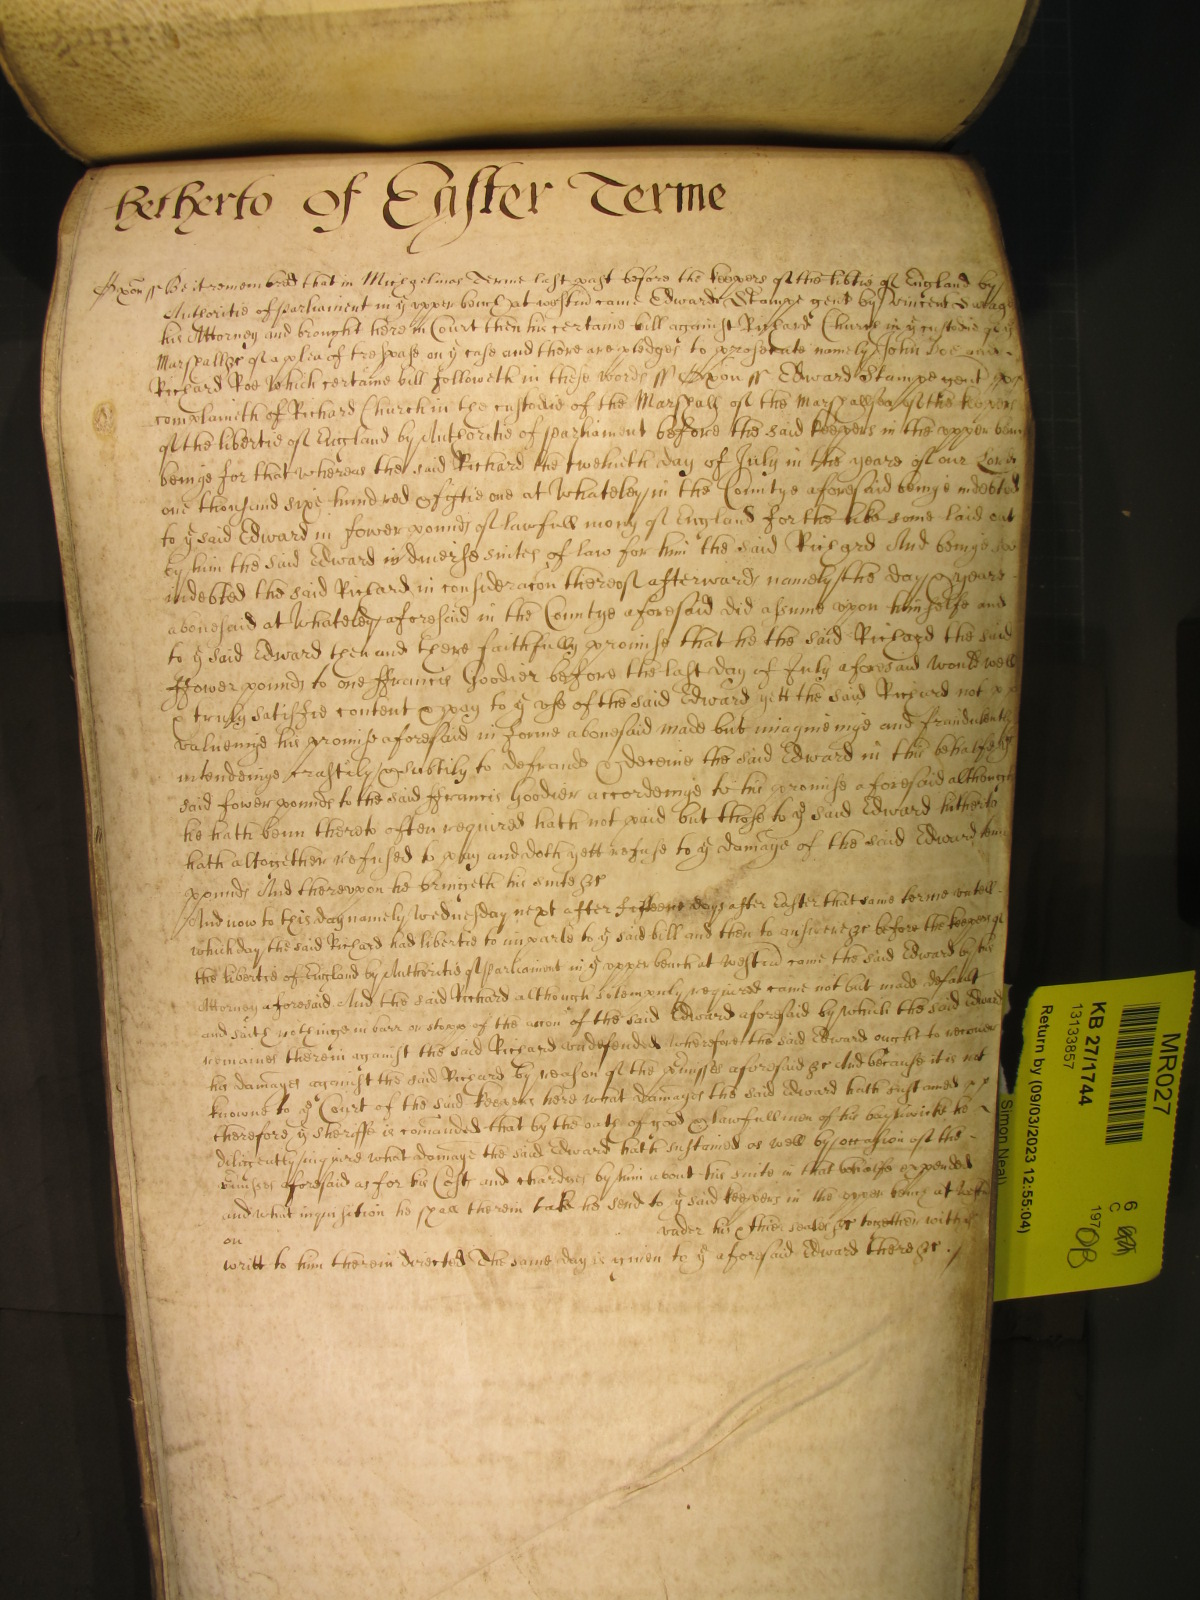 hetherto Of Easter Terme
Oxon ss Be it remembred that in Michaelmas Terme last past before the keepers of the libtie of England by
Authoritie of Parliament in ye vpper bench at westm came Edward Stampe gent by vincent
his Attorney and brought here in Court then his certaine bill against Richard Church in ye custodie of ye
Marshall &c of a plea of trespase on ye case and there are pledges to prosecute namely John Doe and
Richard Roe Which certaine bill followeth in these words ss Oxon ss Edward Stampe gent
complaineth of Richard Church in the custodie of the Marshall of the Marshallsea of the keepers
of the libertie of England by Authoritie of Parliament before the said keepers in the vpper bench
beinge for that whereas the said Richard the twelvth day of July in the yeare of our Lord
one thousand sixe hundred & fiftie one at Whateley in the Countye aforesaid beinge indebted
to ye said Edward in fower pounds of lawfull mony of England for the like some laid out
by him the said Edward in diuerse suites of law for him the said Richard And beinge soe
indebted the said Richard in consideracon thereof afterwards namely the day & yeare
abouesaid at Whateley aforesaid in the Countye aforesaid did assume vpon himselfe and
to ye said Edward then and there faithfully promise that he the said Richard the said
ffower pounds to one ffrancis Goodier before the last day of July aforesaid would well
& truly satisfie content & pay to ye vse of the said Edward yett the said Richard not
valueinge his promise aforesaid in forme abouesaid made but imagineinge and fraudulently
intendeinge craftily & subtily to defraude & deceiue the said Edward in this behalfe ye
said fower pounds to the said ffrancis Goodier accordeinge to his promise aforesaid although
he hath benn thereto often required hath not paid but those to ye said Edward hitherto
hath altogether refused to pay and doth yett refuse to ye damage of the said Edward tenn
pounds And therevpon he bringeth his suite &c
And now to this day namely Wednesday next after fifteene dayes after Easter that same terme vntill
which day the said Richard had libertie to imparle to ye said bill and then to answere &c before the keepers of
the libertie of England by Authoritie of Parliament in ye vpper bench at westm came the said Edward by his
Attorney aforesaid And the said Richard although solempnly required came not but made default
and saith nothinge in barr or stopp of the accon of the said Edward aforesaid by which the said Edward
remaines therein against the said Richard vndefended wherefore the said Edward ought to recouer
his damages against the said Richard by reason of the premisses aforesaid &c And because it is not
knowne to ye Court of the said keepers here what damages the said Edward hath sustained
therefore ye Sheriffe is comanded that by the oath of good & lawfull men of his bayliwicke he
diligently inquire what damage the said Edward hath sustained as well by occasion of the
premisses aforesaid as for his Cost and chardges by him about his suite in that behalfe expended
and what inquisition he shall therein take he send to ye said keepers in the vpper bench at westm
on vnder his & their seales &c together with ye
writt to him therein directed The same day is giuen to ye aforesaid Edward there &c
MR027
KB 27/1744
13133857
Return by (09/03/2023 12:55:04)
Simon Neal
6
C
197
08